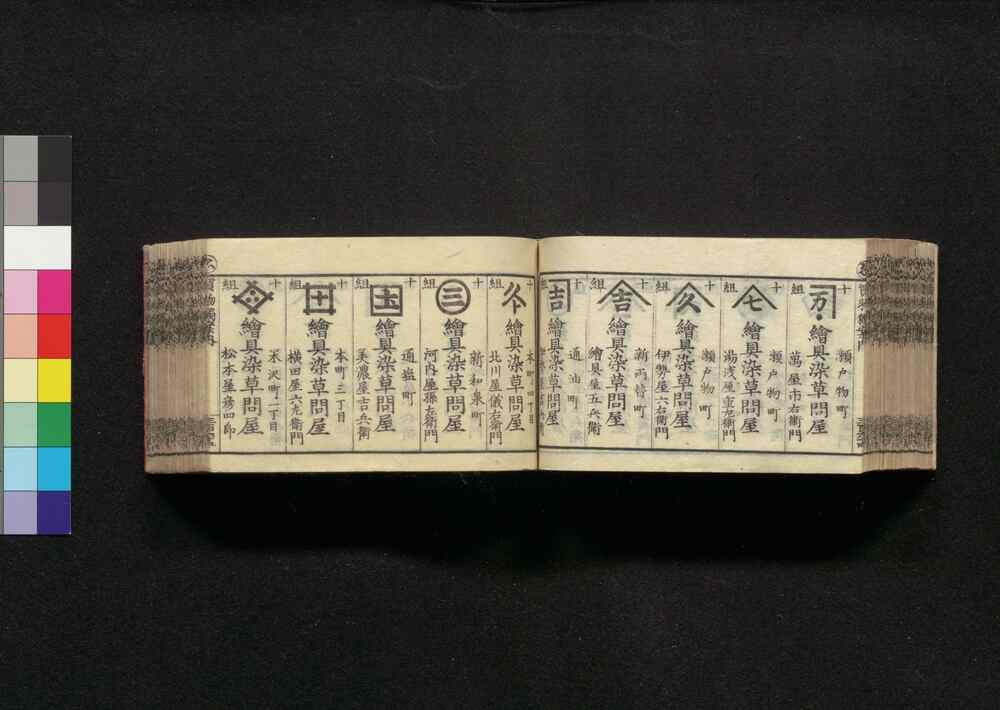 十組
万
瀬戸物町
繪具染草問屋
萬屋市右衛門
十組
七
瀬戸物町
繪具染草問屋
十組
久
瀬戸物町
繪具染草問屋
伊勢屋六右衛門
十組
吉
新両替町
繪具染草問屋
繪具屋五兵衛
十組
吉
通油町
繪具染草問屋
十組
本町四丁目
繪具染草問屋
北川屋儀右衛門
十組
三
新和泉町
繪具染草問屋
河内屋孫左衛門
十組
玉
通塩町
繪具染草問屋
美濃屋吉兵衛
十組
十
本町三丁目
繪具染草問屋
横田屋六左衛門
十組
米沢町二丁目
繪具染草問屋
松本屋彦四郎